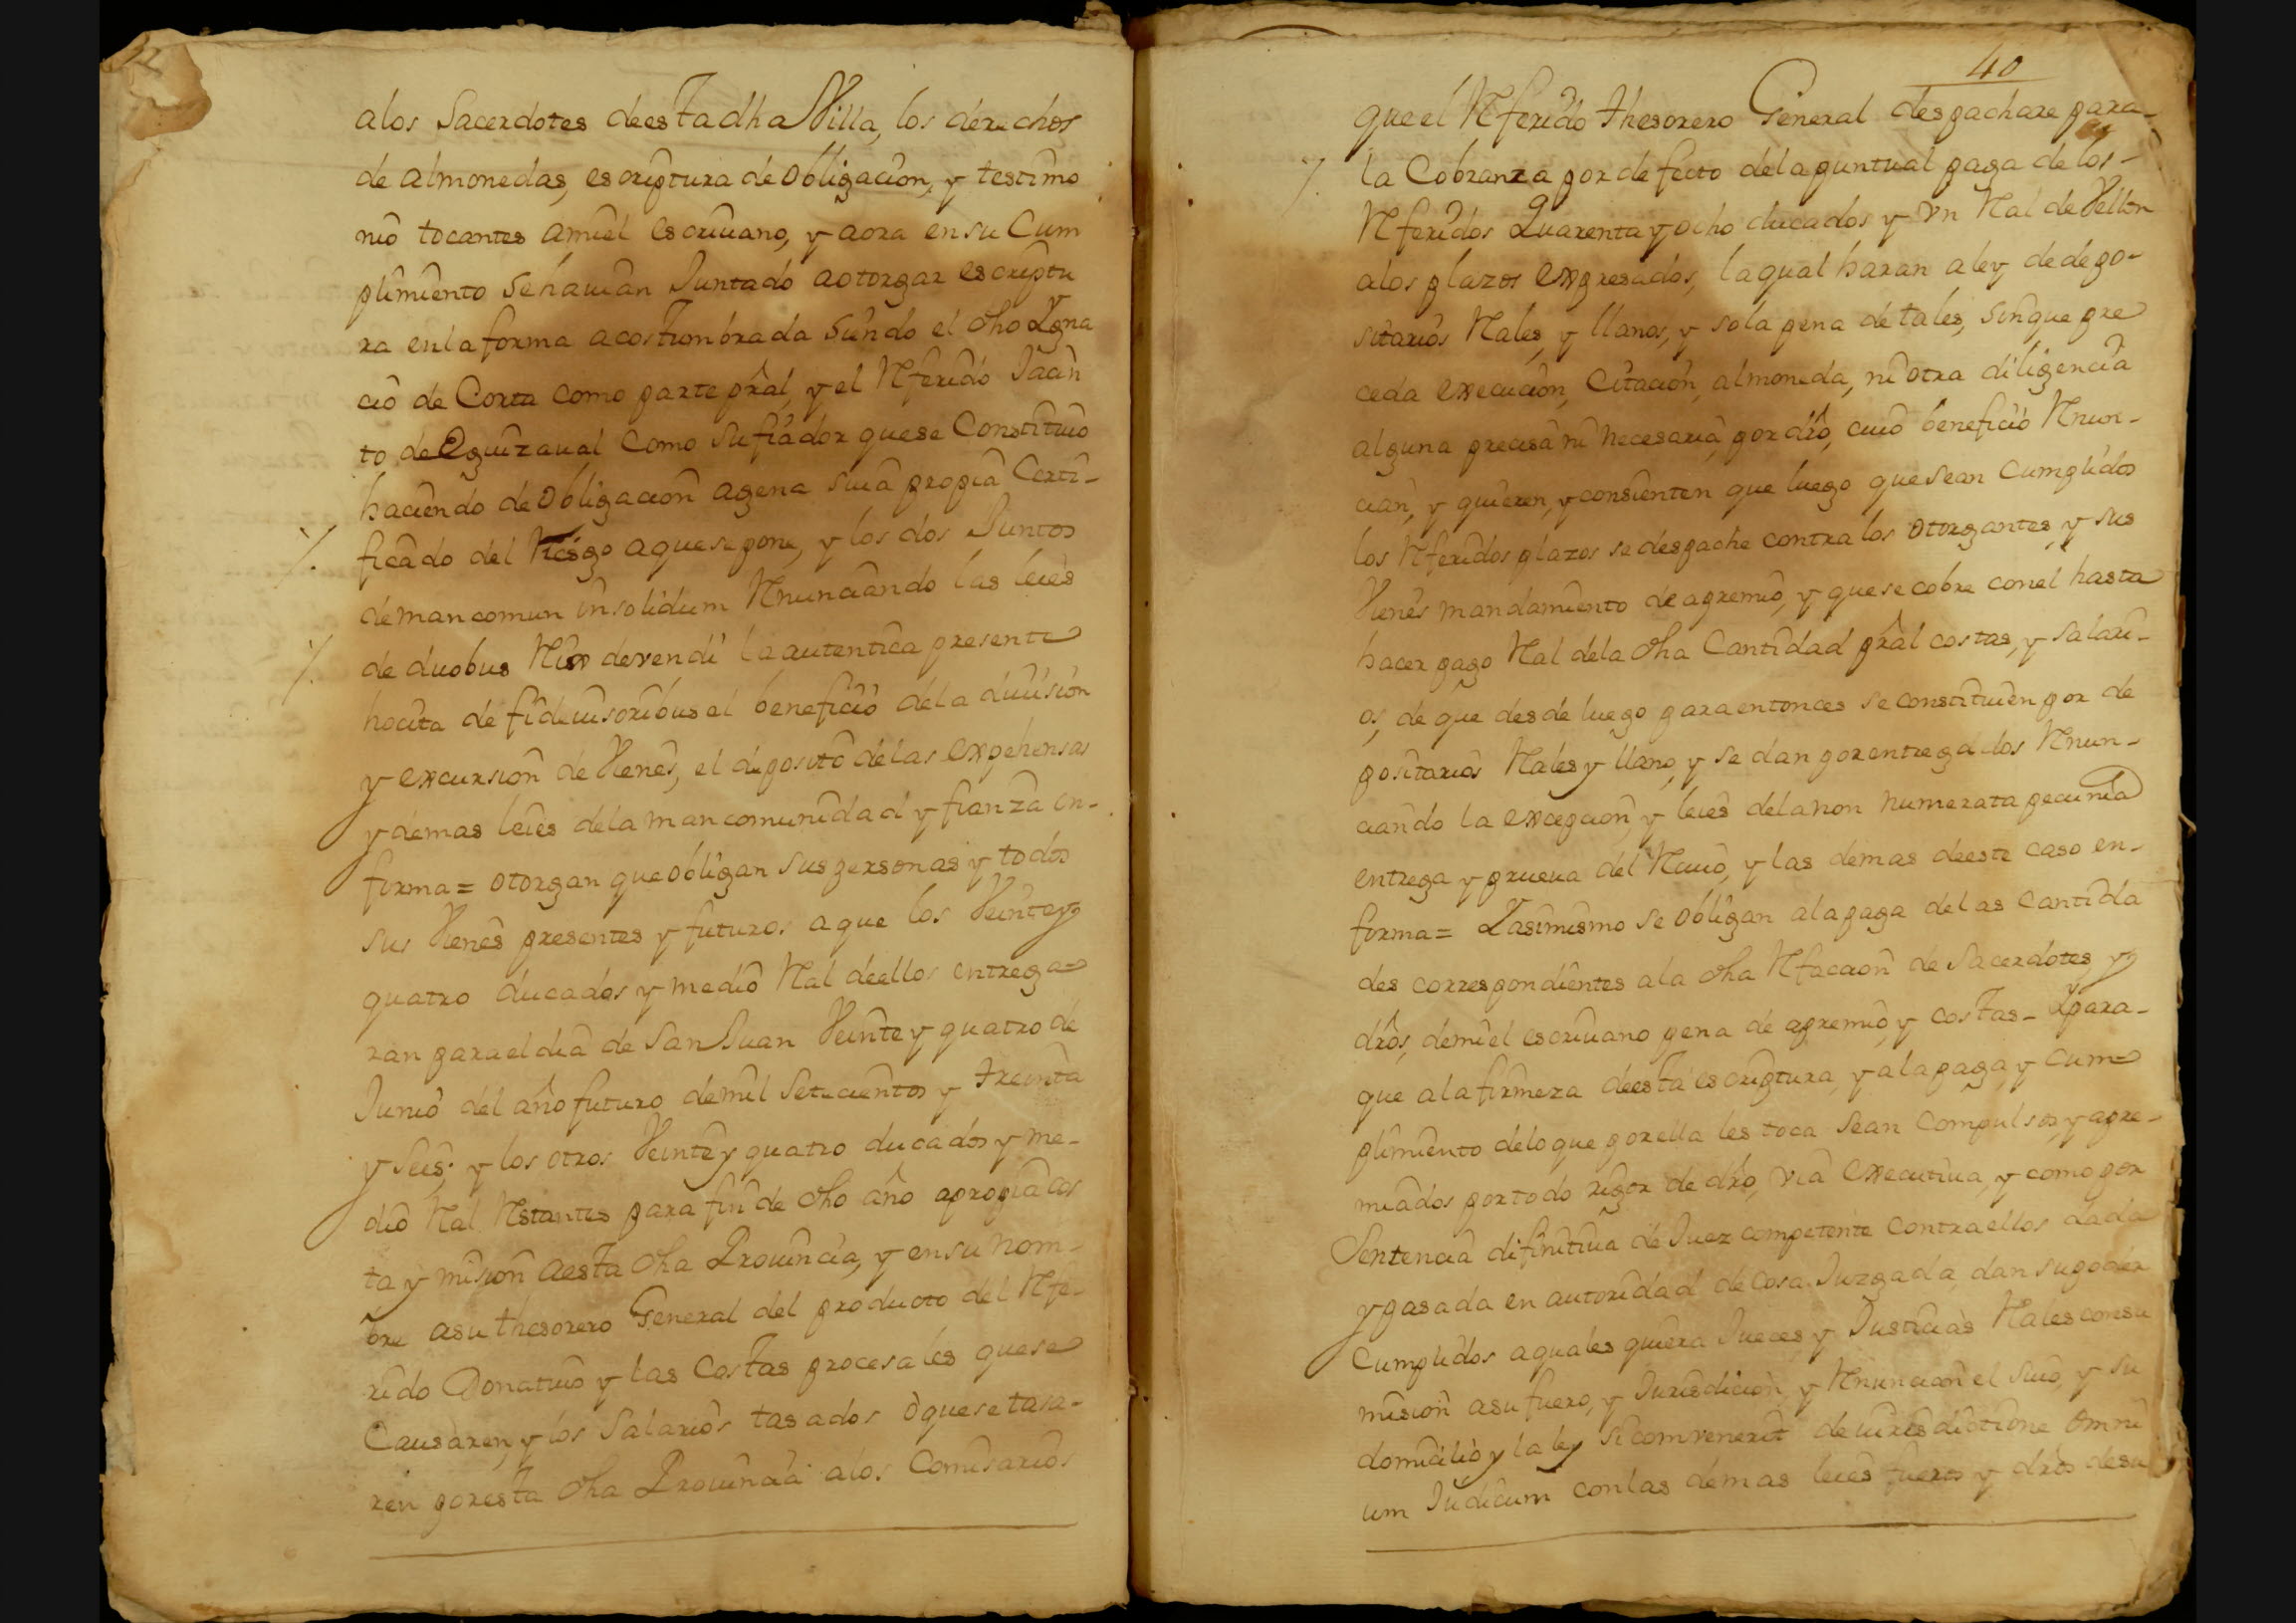 alos Sacerdotes deesta dha Villa, los derechos
de almonedas, escriptura de obligacion, y testimo
nio tocantes amiel escriuano, y aora ensu Cum
plimiento sehauian Juntado aotorgar escriptu
ra enla forma acostumbrada siendo el dho Ygna
cio de Corta como parte pral, y el Rferido Jacin
to de Eguizaual como sufiador quese Constituio
haciendo de obligacion agena suia propia Certi-
ficado del Riesgo aquesepone, y los dos Juntos
demancomun insolidum Rnunciando las leies
de duobus Reis devendi la autentica presente
hocita de fideiusoribus el beneficio dela diuision
y excursion de Vienes, el deposito delas expehensas
y demas leies dela mancomunidad y fianza en-
forma= otorgan que obligan sus personas y todos
sus Vienes presentes y futuros a que los Veinte y
quatro ducados y medio Ral deellos entrega-
ran parael dia de San Juan Veinte y quatro de
Junio del año futuro demil setecientos y treinta
y seis; y los otros Veinte y quatro ducados y me-
dio Ral Rstantes para fin de dho año apropia cos
ta y mision aesta dha Prouincia, y ensu nom-
bre asu thesorero General del producto del Rfe-
rido Donatiuo y las Costas procesales quese
Causaren, y los Salarios tasados ò quese tasa-
ren poresta dha Prouincia alos Comisarios
40
queel Rferido thesorero General despachare para-
la Cobranza por defecto dela puntual paga de los-
Rferidos Quarenta y ocho ducados y vn Ral de Vellon
alos plazos expresados, laqual haran a ley dedepo-
sitarios Rales, y llanos, y sola pena de tales, sinque pre
ceda execucion, Citacion, almoneda, ni otra diligencia
alguna precisa ni necesaria, por dro, cuio beneficio Rnun-
cian, y quieren, y consienten que luego quesean Cumplidos
los Rferidos plazos se despache contra los otorgantes, y sus
Vienes mandamiento de apremio, y quese cobre conel hasta
hacer pago Ral dela dha Cantidad pral costas, y salari-
os, de que desde luego para entonces se constituien por de
positarios Rales y llano, y se dan por entregados Rnun-
ciando la excepcion, y leies dela non numerata pecunia
entrega y prueua del Reciuo, y las demas deeste caso en-
forma= Yasimismo se obligan alapaga delas Cantida
des correspondientes ala dha Rfaccion de Sacerdotes, y
dros, demiel escriuano pena de apremio, y costas- Ypara-
que ala firmeza deesta escriptura, y alapaga, y cum-
plimiento delo que porella les toca sean Compulsos, y apre-
miados portodo rigor de dro, via executiua, y como por
Sentencia difinitiua de Juez competente contra ellos dada
y pasada en autoridad de cosa Juzgada, dan supoder
Cumplidos aquales quiera Jueces, y Justicias Rales consu
mision asu fuero, y Jurisdicion, y Rnuncian el suio, y su
domicilio y la ley sicomvenerit de iurisdictione omni
um Judicum conlas demas leies fueros y dros desu